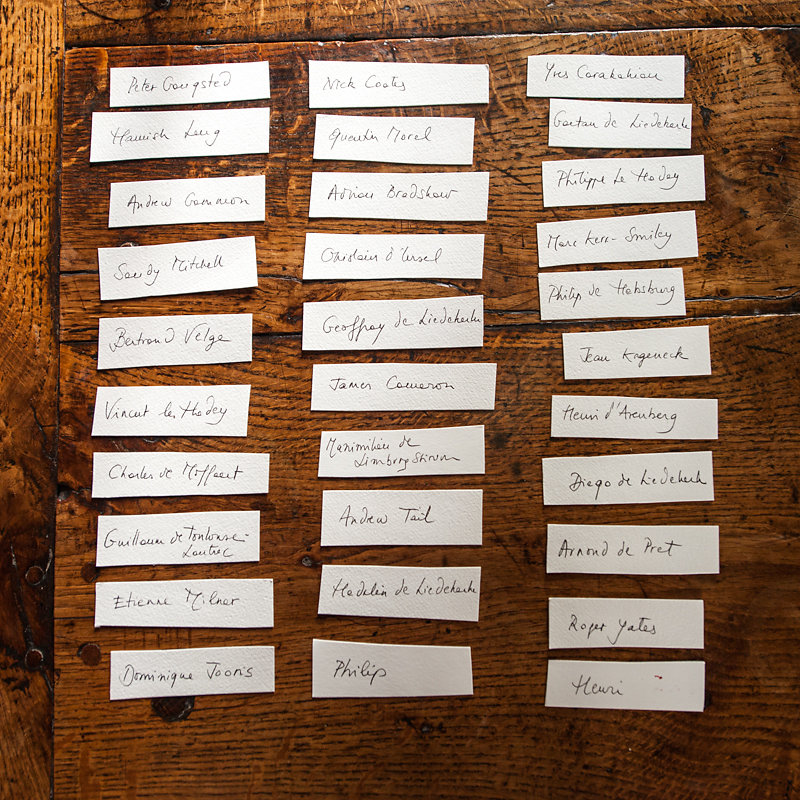 Peter Gongsted
Hamish Leng
Andrew Common
Sandy Mitchell
Bertrand Velge
Vincent le Hodey
Charles de Moffaert
Guillaume de Toulouse-
Lautrec
Etienne Milner
Dominique Jooris
Nick Coates
Quentin Morel
Adrian Bradshaw
Ghislain d'Ursel
Geoffroy de Liedekerke
James Cameron
Maximilien de
Limburg Stirum
Andrew Tail
Hadelin de Liedekerke
Philip
Yves
Gaetan de Liedekerke
Philippe Le Hodey
Marc Kerr-Smiley
Philip de Habsburg
Jean Kageneck
Henri d'Arenberg
Diego de Liedekerke
Arnond de Pret
Roger Yates
Henri